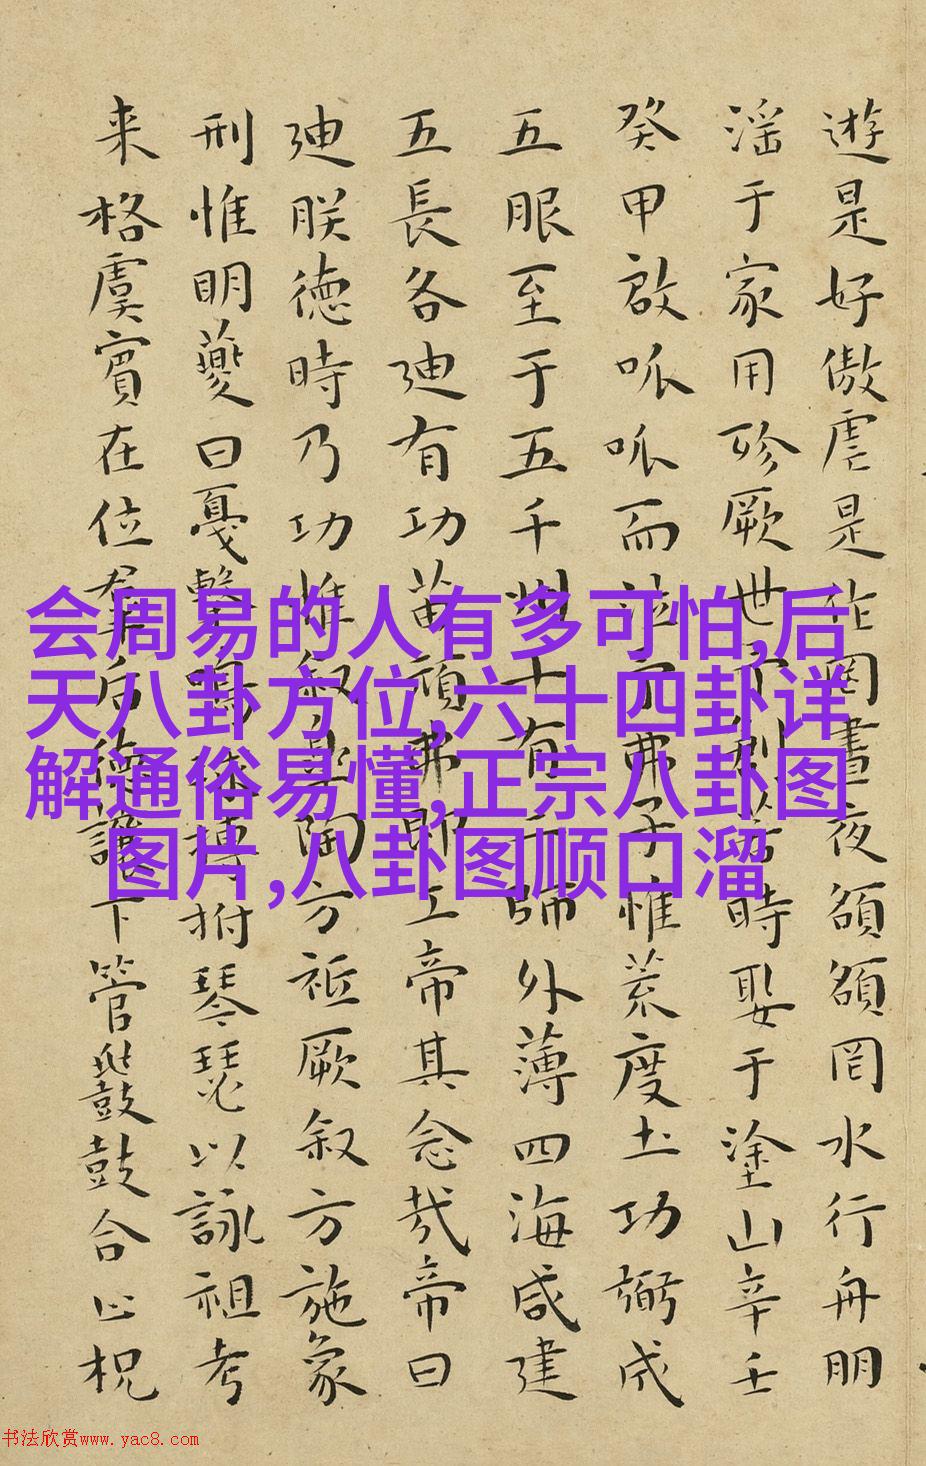 遊是好傲虐是作罔晝夜頟頟罔水行舟朋
淫于家用殄厥世予創若時娶于塗山辛壬
癸甲啟呱呱而泣予弗子惟荒度土功弼成
五服至于五千州十有二師外薄四海咸建
五長各廸有功苗頑弗即工帝其念哉帝曰
廸朕德時乃功惟叙皋陶方祗厥叙方施象
刑惟明夔曰戛擊鳴球搏拊琴瑟以詠祖考
来格虞賓在位羣后德讓下管鼗鼓合止柷
会周易的人有多可怕,后
天八卦方位,六十四卦详
解通俗易懂,正宗八卦图
图片,八卦图顺口溜
书法欣赏www.yac8.com